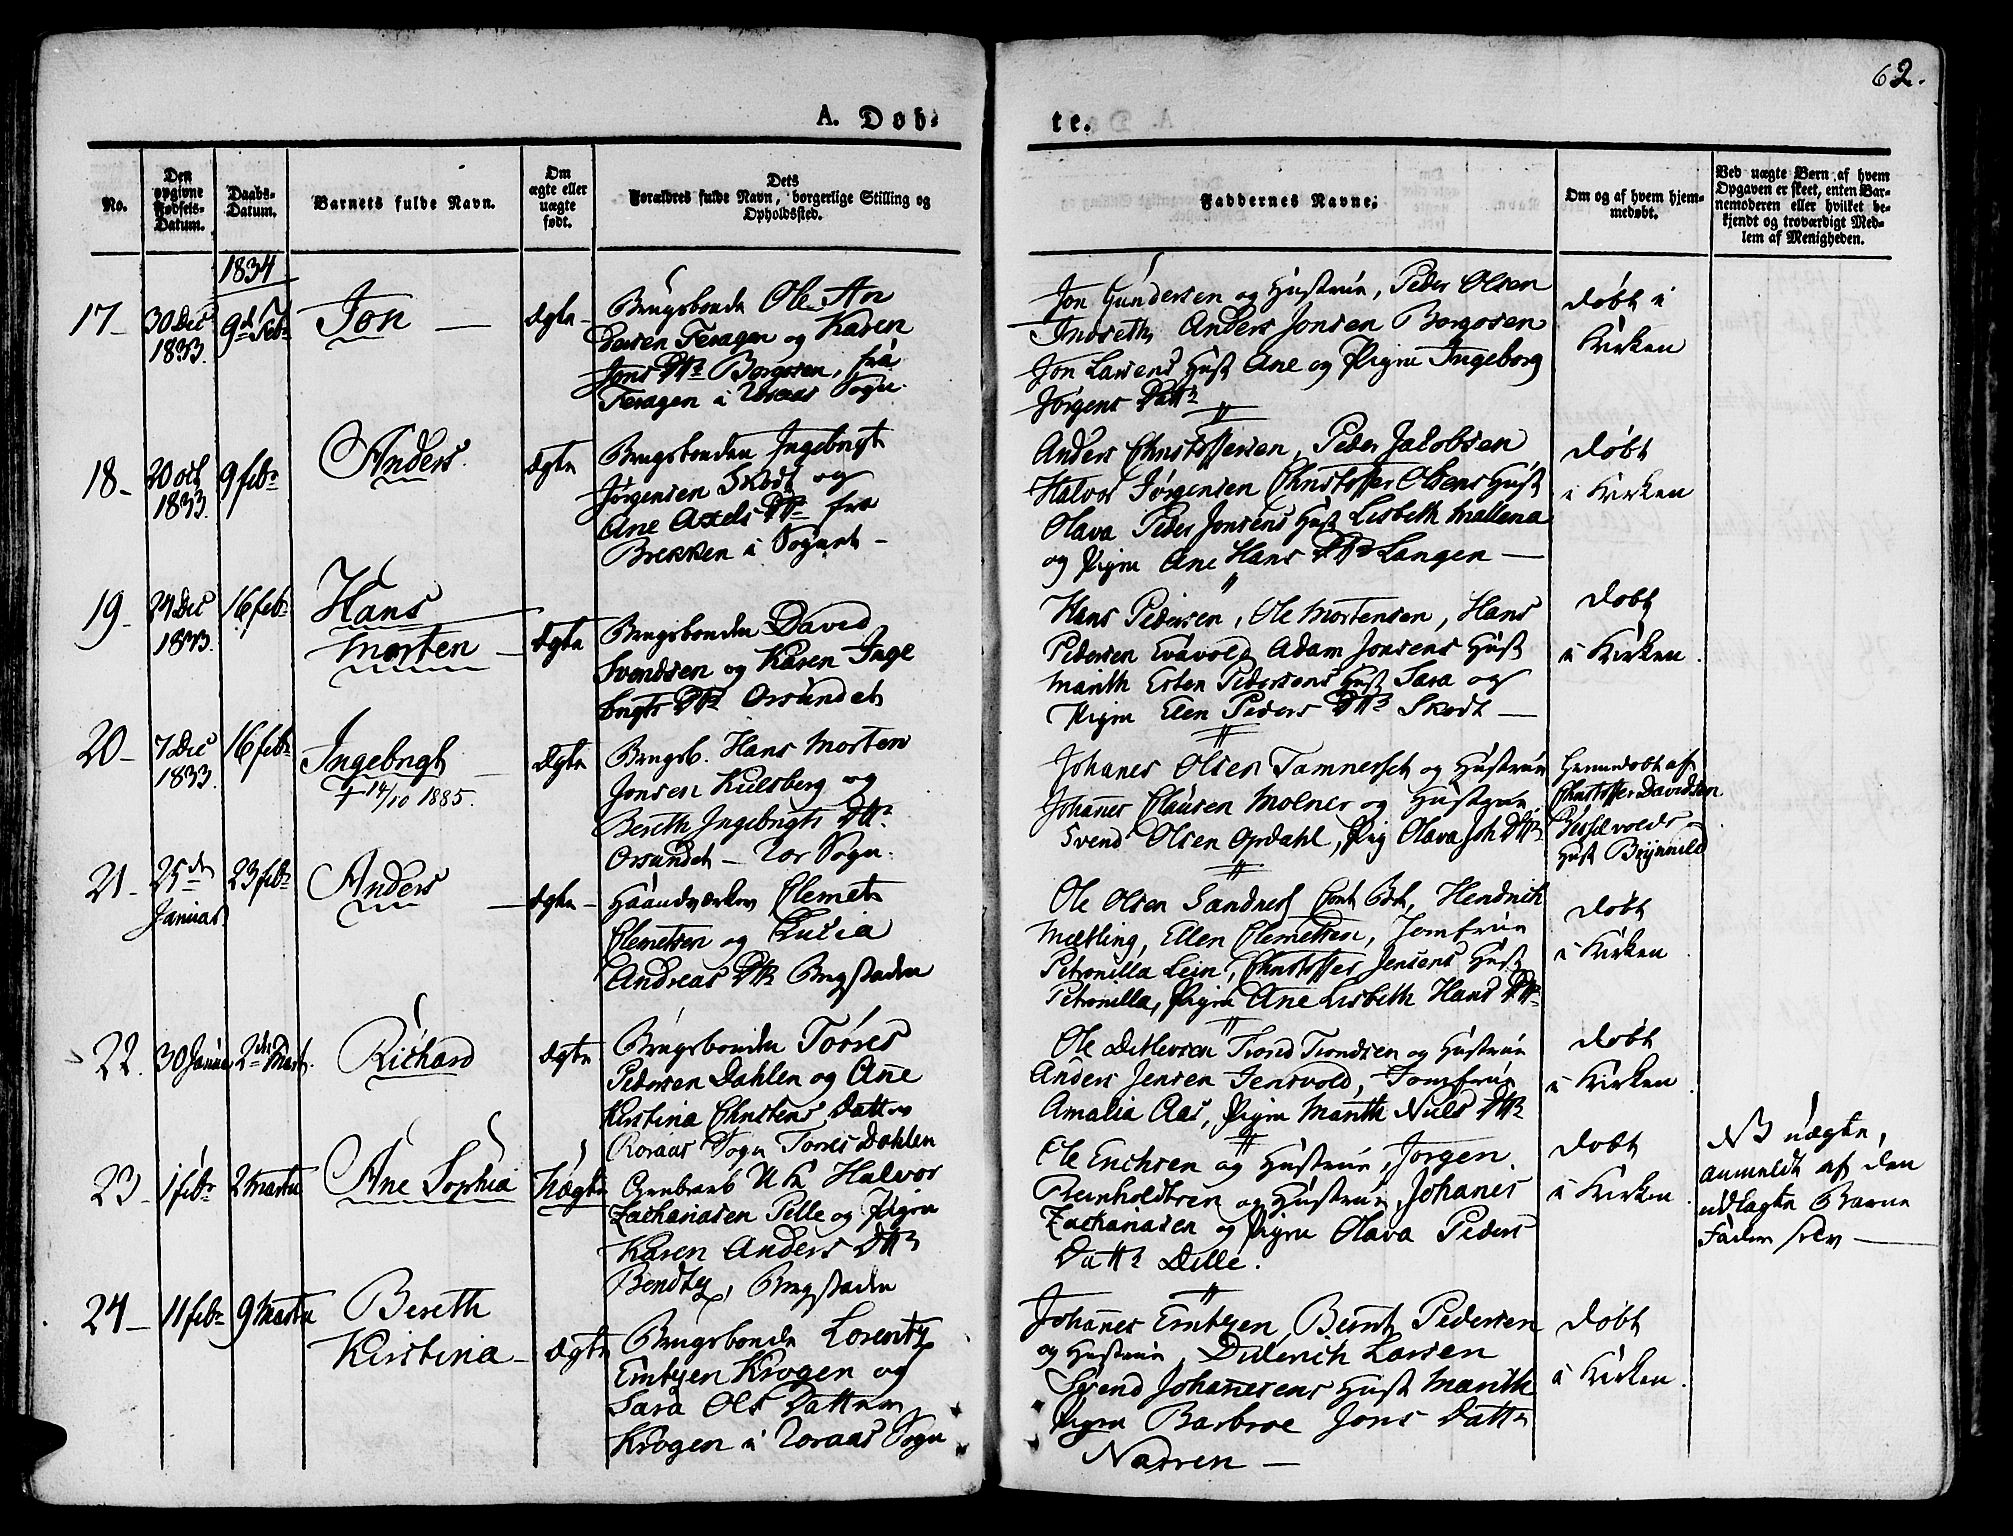 62.
A. Døb-
te.
No.
Den
opgivne
Fødsels-
Datum.
Daabs-
Datum.
Barnets fulde Navn.
Om
ægte eller
uægte
født.
Dets
Forældres fulde Navn, borgerlige Stilling og
Opholdssted.
Faddernes Navne.
Om og af hvem hjem-
medøbt.
Ved uægte Børn af hvem
Opgaven er skeet, enten Bar-
nemoderen eller hvilket be-
kjendt og troværdigt Med-
lem af Menigheden.
1834
17 -
30 Dec
1833.
9d Feb
Jon
Ægte -
Brugsbonde Ole An
dersen Feragen og Karen
Jons Dtr Borgosen, fra
Feragen i Roraas Sogn.
Jon Gundersen og Hustrue, Peder Olsen
Anders Jonsen Borgosen
Jon Larsens Hust Ane og Pigen Ingeborg
Jørgens Datr
Døbt i
Kirken
18 -
20 oct
1833.
9 febr
Anders.
Ægte
Brugsbonden Ingebrigt
Jørgensen Skodt og
Ane Axels Dtr fra
Brekken i Sognet -
Anders Christoffersen, Peder Jacobsen
Halvor Jørgensen Christoffer Olsens Hust
Olava Peder Jonsens Hust Lisbeth Mallena
og Pigen Ane Hans Dtr Langen -
Døbt
i Kirken
19 -
24 Dec
1833.
16 febr
Hans
Morten -
Ægte
Brugsbonden David
Svendsen og Karen Inge
brigts Dtr Orsundet
Hans Pedersen, Ole Mortensen, Hans
Pedersen Evavold Adam Jonsens Hust
Marith Esten Pedersens Hust Sara og
Pigen Elen Peders Dtr Skodt -
Døbt
i Kirken.
20 -
7 Dec
1833.
16 febr
Ingebrigt
† 14/10 1885.
Ægte
Brugsb. Hans Morten
Jonsen Kulsberg og
Bereth Ingebrigts Dtr
Orsundet - Ror Sogn.
Johanes Olsen Tamneset og Hustrue
Johannes Clausen Molner og Hustrue,
Svend Olsen Opdahl, Pig Olava Joh Dtr
Hiemdøbt af
Christoffer Davidsen
Hust Brynnild
21 -
25de
Januar
23 febr
Anders
Ægte -
Haandværker Clemet
Clemetsen og Lucia
Andreas Dtr Bergstaden
Ole Olsen Sandnes Hendrich
Metling, Ellen Clemetsen, Jomfrue
Petronilla Lein, Christoffer Jensens Hust
Petronilla, Pigen Ane Lisbeth Hans Dtr
Døbt
i Kirken
22.
30 Januar
2den Marts.
Richard
Ægte
Brugsbonden Torres
Pedersen Dahlen og Ane
Kirstina Christens Datter
Roraas Sogn Torres Dahlen
Ole Ditlevsen Trond Trondsen og Hustrue
Anders Jensen Jensvold, Jomfrue
Amalia Aas, Pigen Marith Niels Dtr
Døbt
i Kirken
23 -
1 febr
2 Marts
Ane Sophia
Uægte
Grubearb U K Halvor
Zachariasen Pelle og Pigen
Karen Anders Dtr
Bendtz, Bergstaden
Ole Erichsen og Hustrue, Jørgen
Reinholdtsen og Hustrue, Johanes
Zachariasen og Pigen Olava Peders
Datr Dille.
Døbt
i Kirken.
NB uægte,
anmeldt af den
udlagte Barne
Fader selv -
24 -
11 febr
9 Marts
Bereth
Kirstina -
Ægte
Brugsbonde Lorentz
Emtzen Krogen og
Sara Ols Datter
Krogen i Roraas Sogn
Johannes Emtzen, Bernt Pedersen
og Hustrue, Diderich Larsen
Svend Johannesens Hust Marith
Pigen Barbroe Jons Datr
Narren -
Døbt
i Kirken.